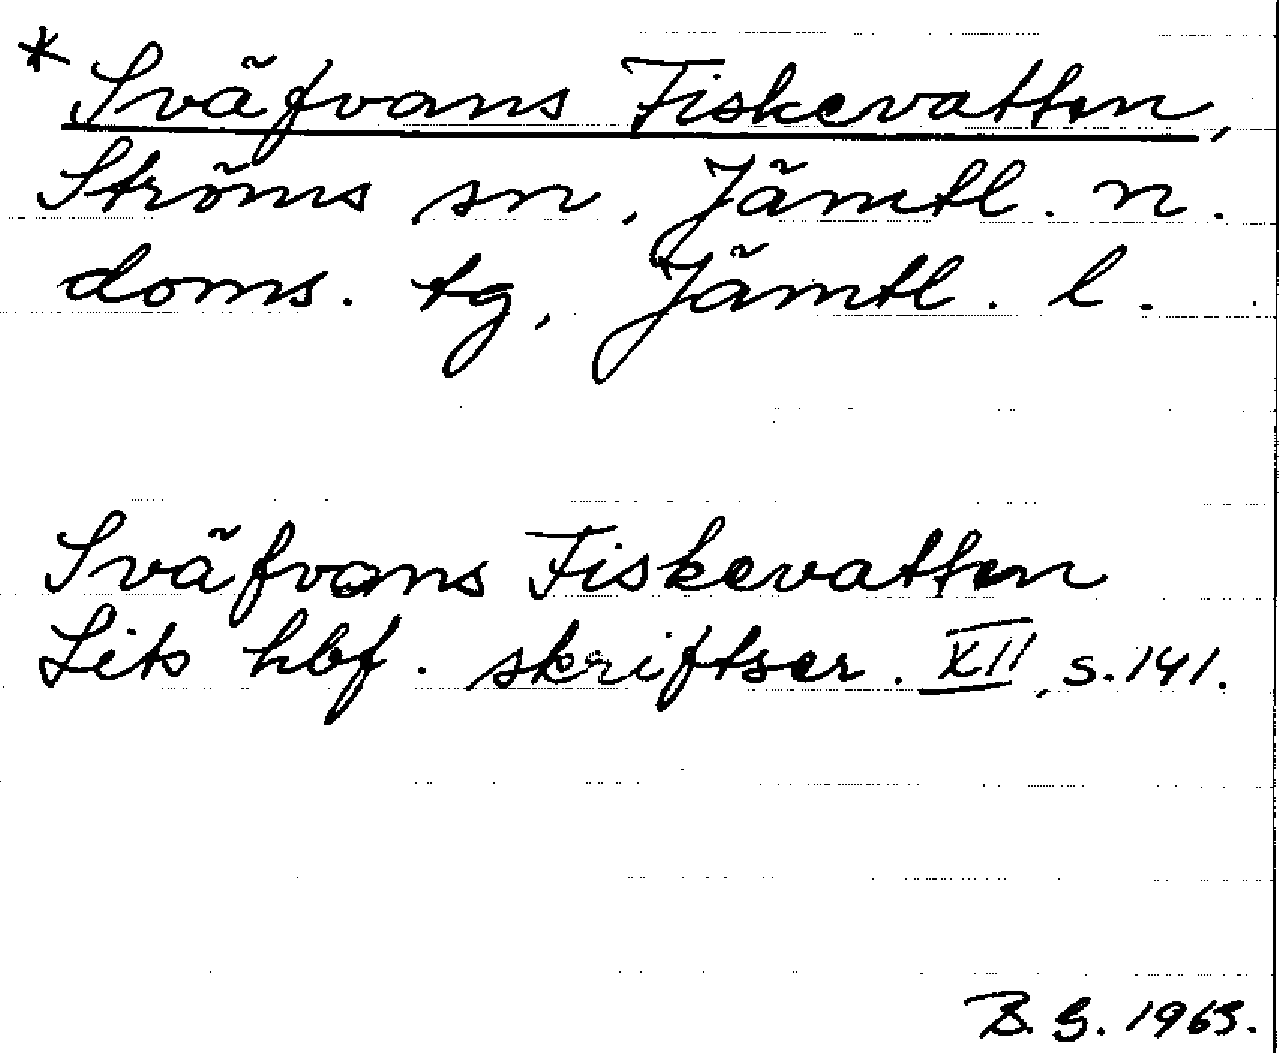 * Sväfvans Fiskevatten,
Ströms sn, Jämtl. n.
doms. tg, Jämtl. l.
Sväfvans Fiskevatten
Lits hbf. skriftser. XII, s. 141.
B. G. 1963.